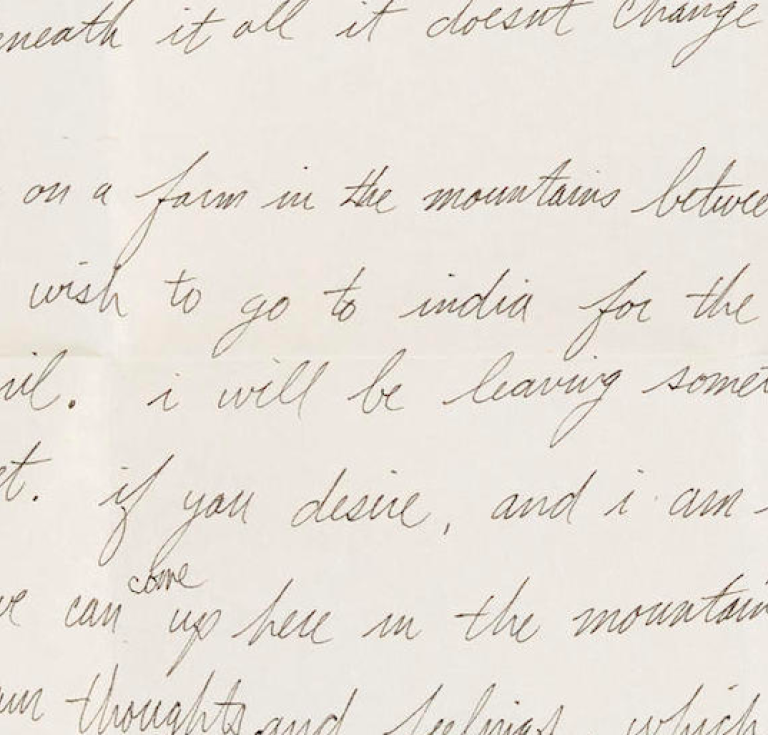 eneath it all it doesnt change
on a farm in the mountains betwee
wish to go to india for the
il. i will be leaving some
et. if you desire, and i am
come
ve can up here in the mountain
thoughts and feelings which